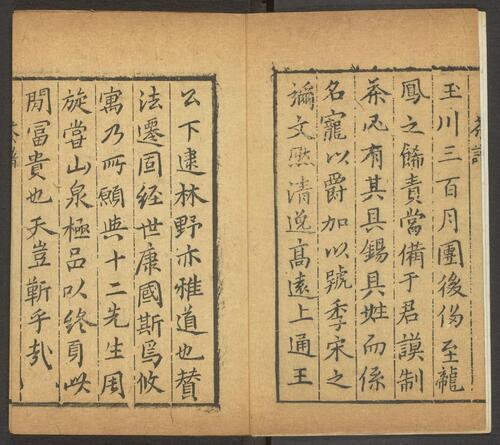 茶譜
玉川三百月團後侈至龍
鳳之餙責當備于君謨制
茶必有其具錫具姓而係
名寵以爵加以號季宋之
彌文然清逸高遠上通王
公下逮林野亦雅道也贊
法遷固經世康國斯焉攸
寓乃所願與十二先生周
旋嘗山泉極品以終身此
閒富貴也天豈靳乎哉